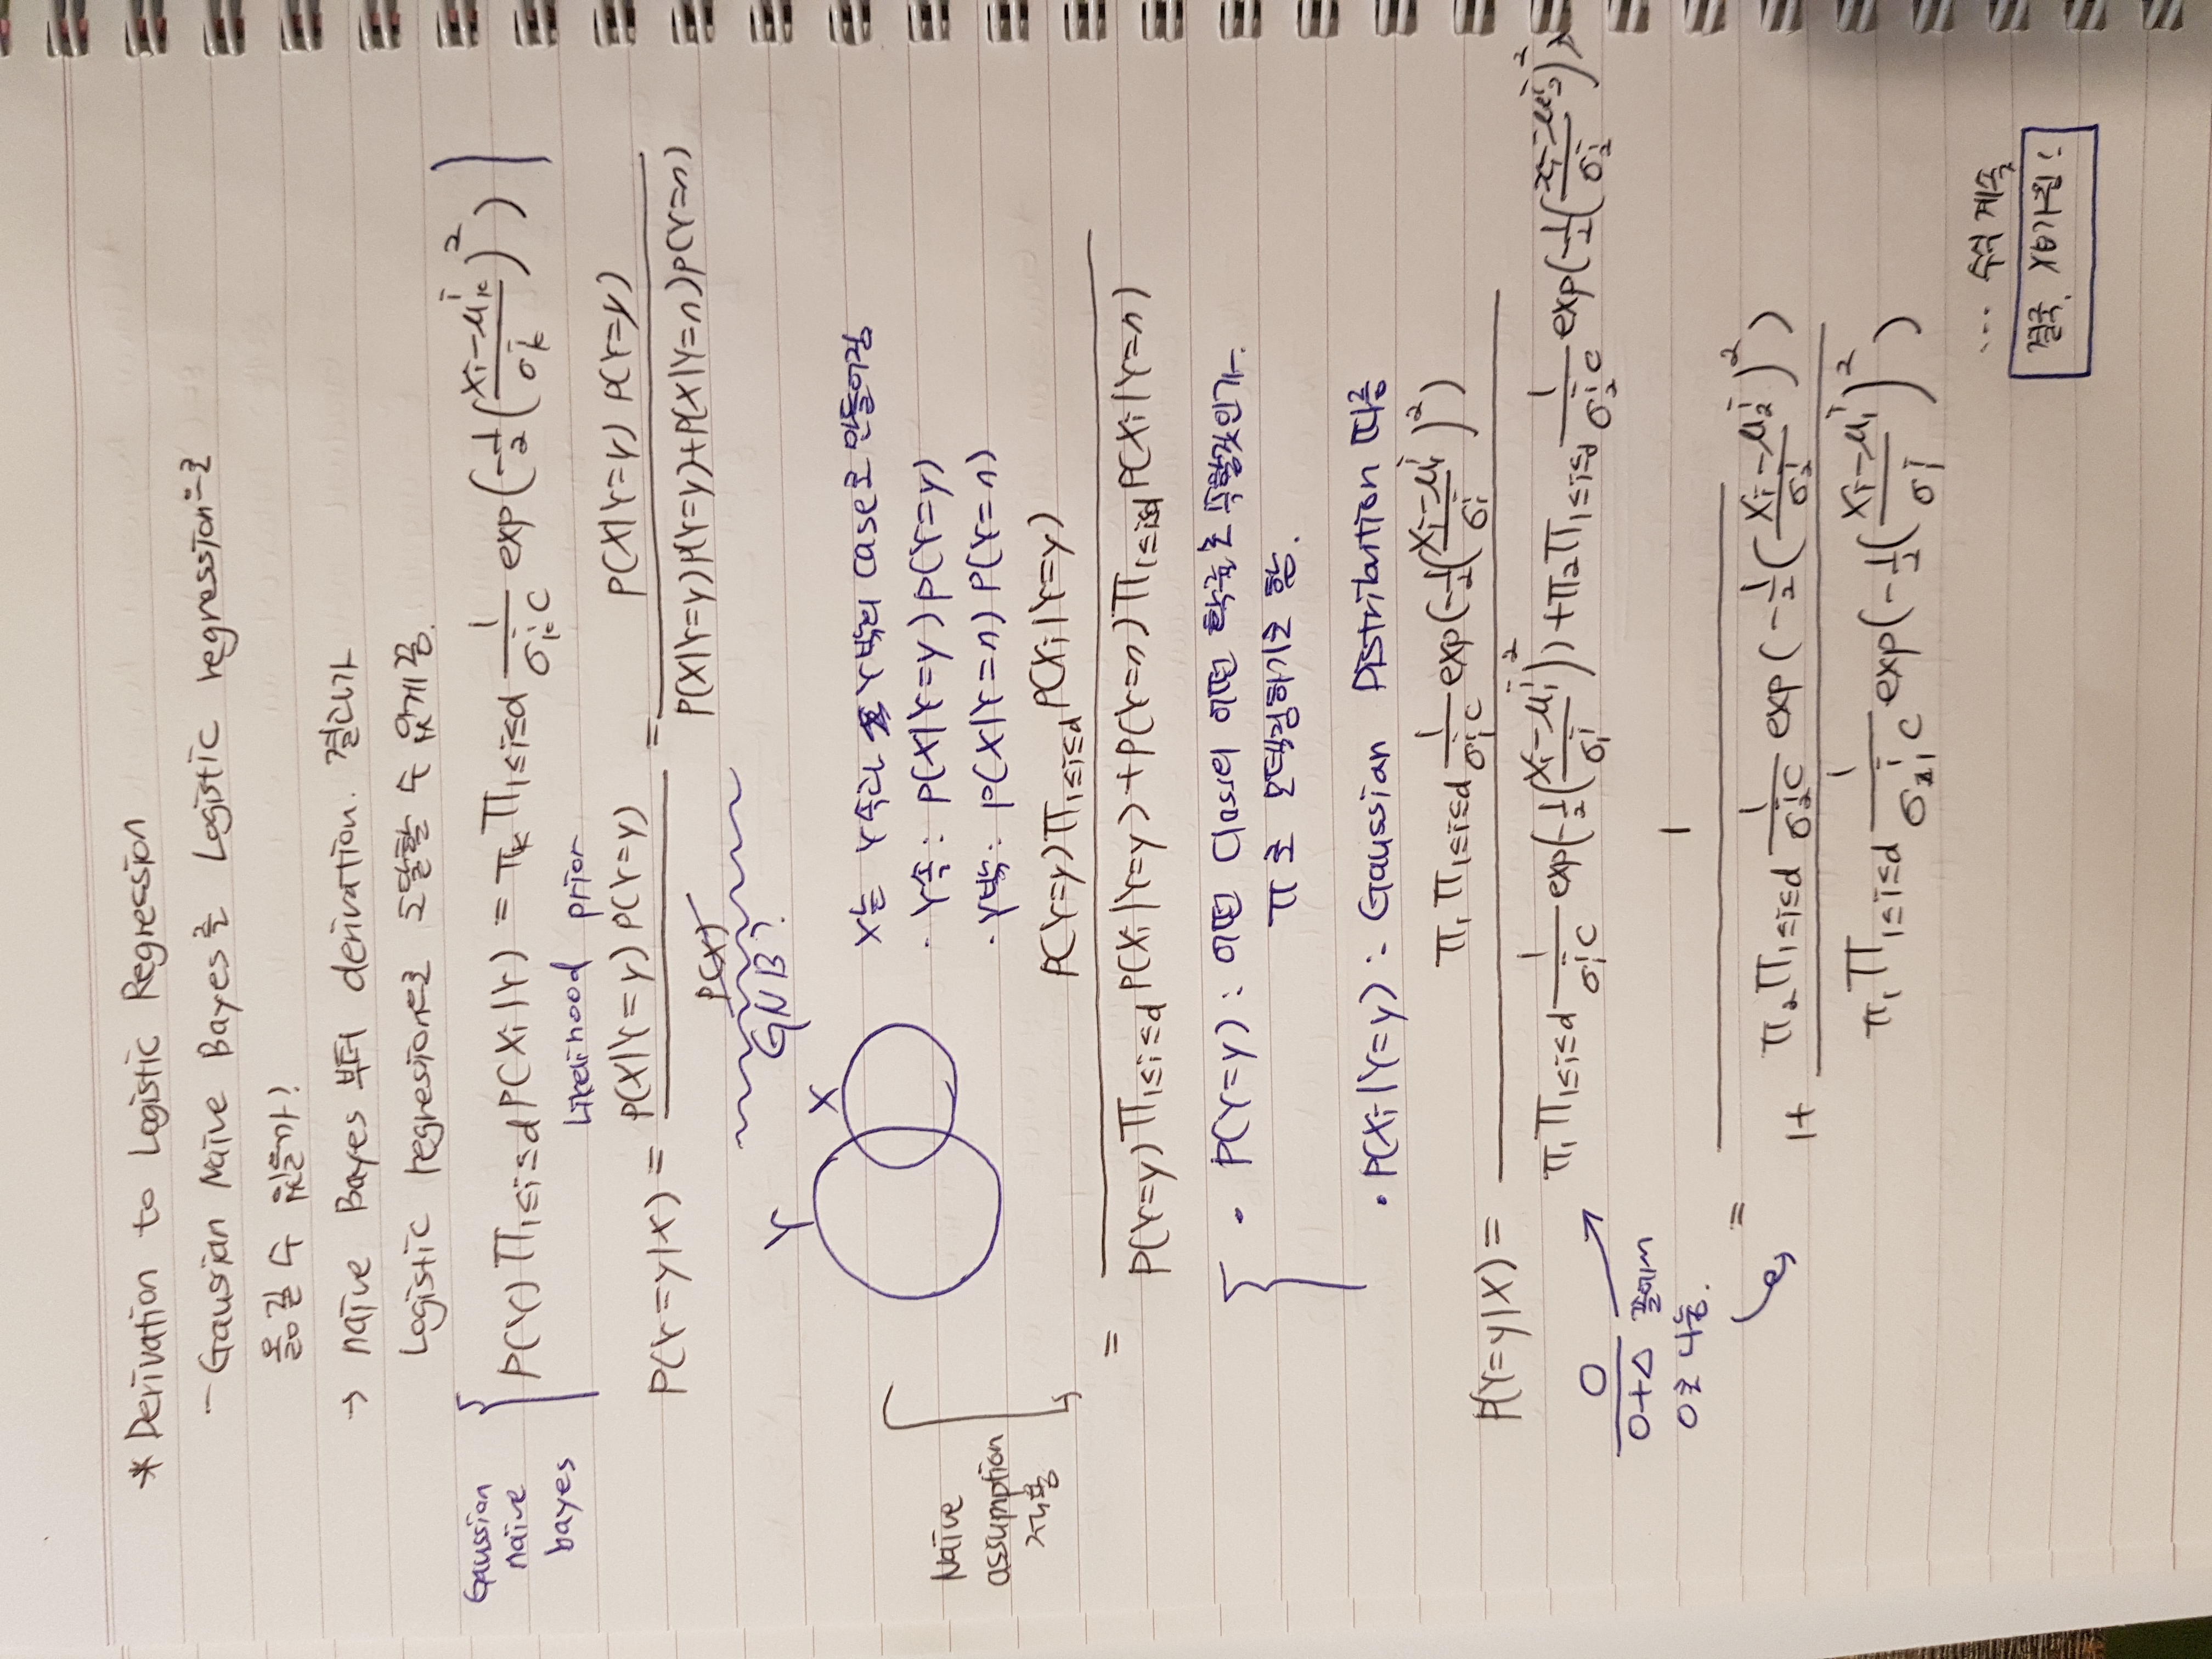 * Derivation to Logistic Regression
- Gaussian Naive Bayes를 Logistic regression으로
옮길 수 있을까?
→ naive Bayes 부터 derivation. 결과가
Logistic regression으로 도달할 수 있게끔.
Gaussian naive bayes
P(Y) Π₁≤i≤d P(Xi|Y) = πk Π₁≤i≤d 1/(σᵢₖ C) exp(-1/2((Xi-μᵢₖ)/σᵢₖ)²)
Likelihood prior
P(Y=y|X) = P(X|Y=y) P(Y=y) / P(X) = P(X|Y=y) P(Y=y) / (P(X|Y=y)P(Y=y)+P(X|Y=n)P(Y=n))
GNB?
Y X
X는 Y속과 Y밖의 case로 만들어짐
· Y속: P(X|Y=y) P(Y=y)
· Y밖: P(X|Y=n) P(Y=n)
Naive
assumption
적용
= P(Y=y) Π₁≤i≤d P(Xi|Y=y) / (P(Y=y) Π₁≤i≤d P(Xi|Y=y) + P(Y=n) Π₁≤i≤d P(Xi|Y=n))
· P(Y=y): 어떤 Class의 어떤 확률로 속할것인가.
π로 모델링하기로 함.
· P(Xi|Y=y): Gaussian Distribution 따름
P(Y=y|X) = π₁ Π₁≤i≤d 1/(σᵢ₁ C) exp(-1/2((Xi-μᵢ₁)/σᵢ₁)²) / (π₁ Π₁≤i≤d 1/(σᵢ₁ C) exp(-1/2((Xi-μᵢ₁)/σᵢ₁)²) + π₂ Π₁≤i≤d 1/(σᵢ₂ C) exp(-1/2((Xi-μᵢ₂)/σᵢ₂)²))
O/(O+△) 꼴에서
O로 나눔.
= 1 / (1+ π₂ Π₁≤i≤d 1/(σᵢ₂ C) exp(-1/2((Xi-μᵢ₂)/σᵢ₂)²) / π₁ Π₁≤i≤d 1/(σᵢ₁ C) exp(-1/2((Xi-μᵢ₁)/σᵢ₁)²))
... 수식 계속
결국, Xθ가 됨!